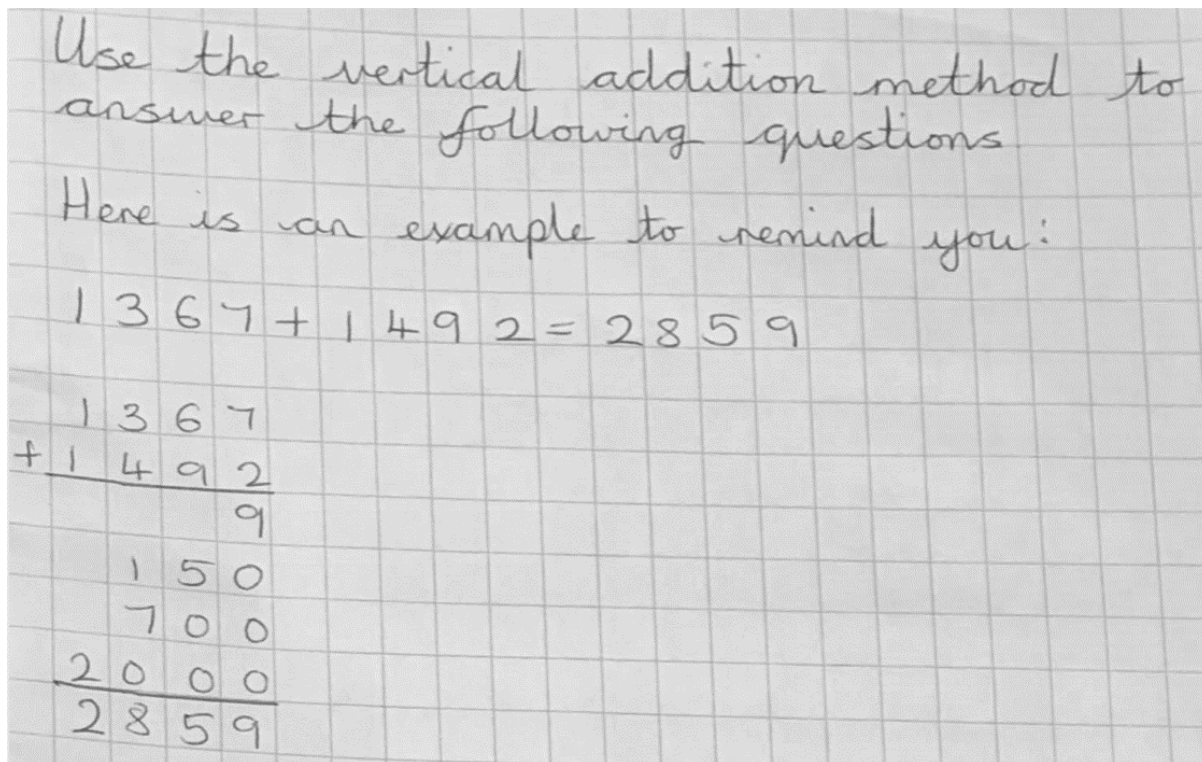 Use the vertical addition method to
answer the following questions
Here is an example to remind you:
1367+1492=2859
1367
+1492
9
150
700
2000
2859